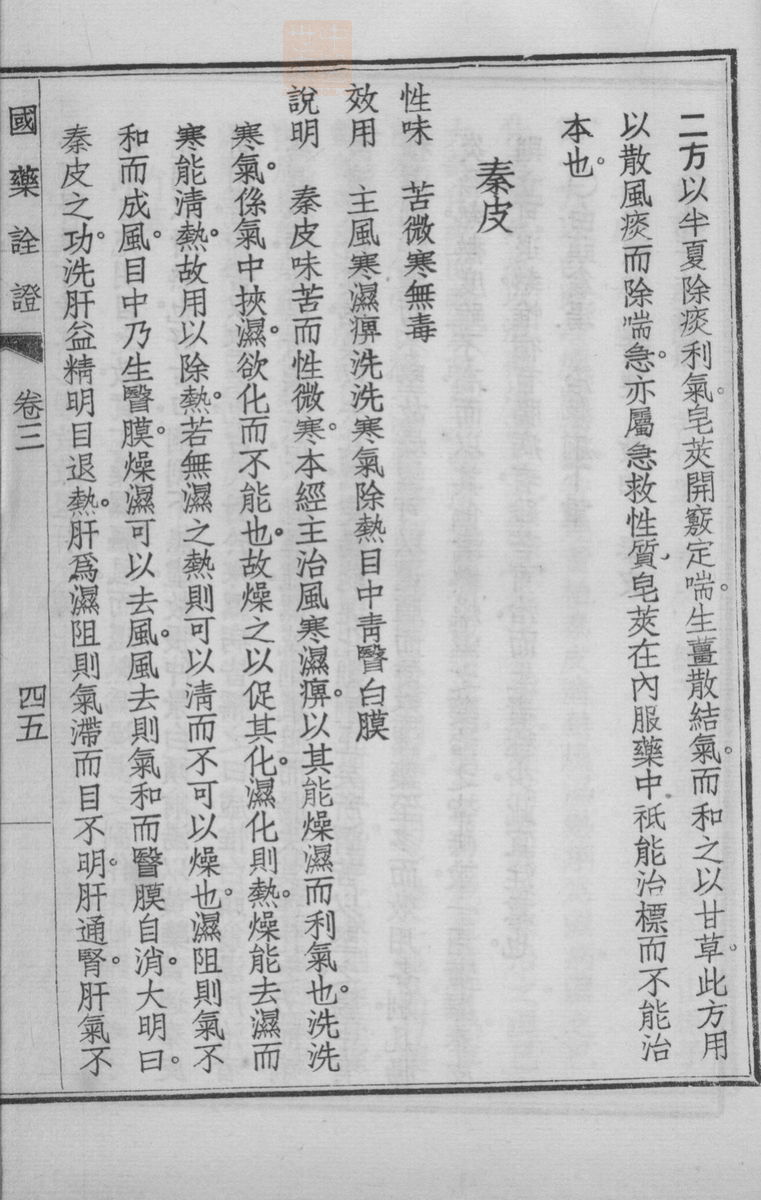 二方以半夏除痰利氣。皂莢開竅定喘。生薑散結氣。而和之以甘草。此方用
以散風痰而除喘急。亦屬急救性質、皂莢在內服藥中祇能治標而不能治
本也。
秦皮
性味　苦微寒無毒
效用　主風寒濕痹洗洗寒氣除熱目中靑瞖白膜
說明　秦皮味苦而性微寒。本經主治風寒濕痹。以其能燥濕而利氣也。洗洗
寒氣。係氣中挾濕。欲化而不能也。故燥之以促其化。濕化則熱。燥能去濕而
寒能淸熱。故用以除熱。若無濕之熱則可以清而不可以燥也。濕阻則氣不
和而成風。目中乃生瞖膜。燥濕可以去風。風去則氣和而瞖膜自消。大明曰。
秦皮之功。洗肝益精明目退熱。肝爲濕阻則氣滯而目不明。肝通腎。肝氣不
國藥詮證　卷三　四五